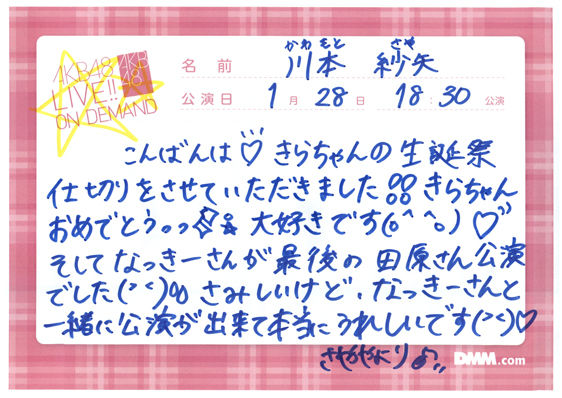 AKB48
LIVE!!
ON DEMAND
AKB
48
かわもと さや
名前 川本 紗矢
公演日 1月28日 18:30公演
こんばんは♡ きらちゃんの生誕祭
仕切りをさせていただきました!! きらちゃん
おめでとう。。 大好きです(o^^o)♡
そしてなっきーさんが最後の田原さん公演
でした(><)。。 さみしいけど、なっきーさんと
一緒に公演が出来て本当にうれしいです(><)♡
さややにり♪
DMM.com